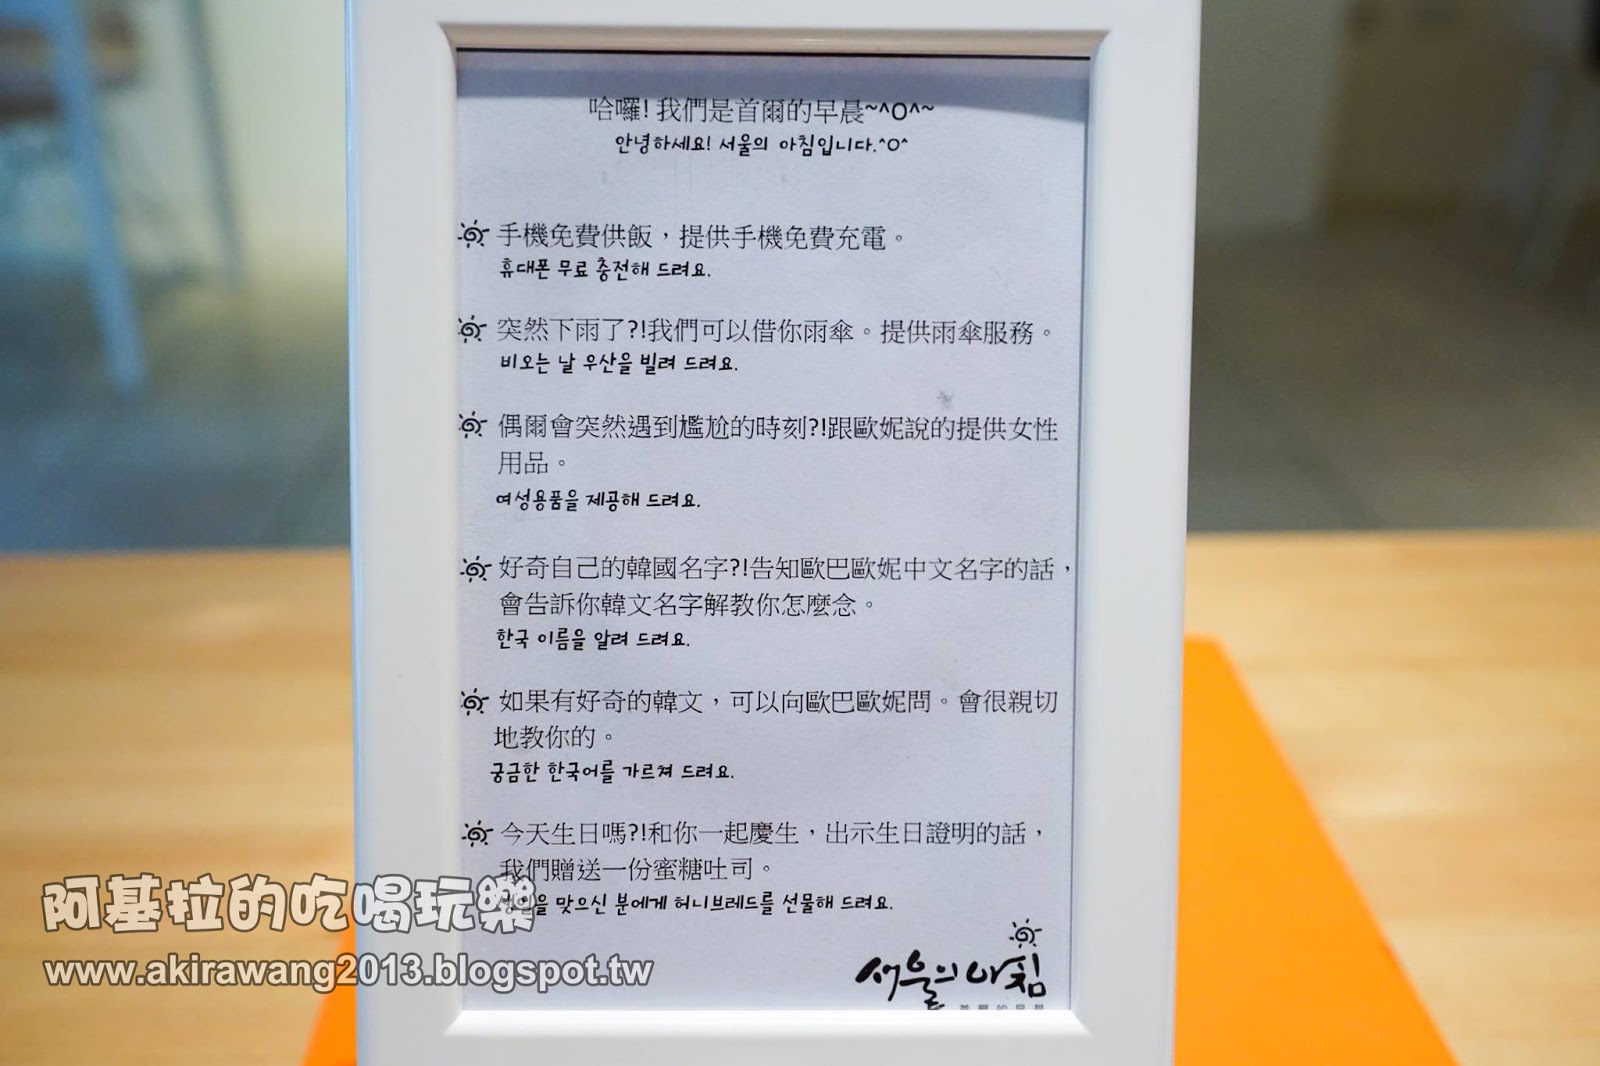 哈囉! 我們是首爾的早晨~^O^~
안녕하세요! 서울의 아침입니다.^O^
手機免費供飯，提供手機免費充電。
휴대폰 무료 충전해 드려요.
突然下雨了?!我們可以借你雨傘。提供雨傘服務。
비오는 날 우산을 빌려 드려요.
偶爾會突然遇到尷尬的時刻?!跟歐妮說的提供女性
用品。
여성용품을 제공해 드려요.
好奇自己的韓國名字?!告知歐巴歐妮中文名字的話，
會告訴你韓文名字解教你怎麼念。
한국 이름을 알려 드려요.
如果有好奇的韓文，可以向歐巴歐妮問。會很親切
地教你的。
궁금한 한국어를 가르쳐 드려요.
今天生日嗎?!和你一起慶生，出示生日證明的話，
我們贈送一份蜜糖吐司。
맞으신 분에게 허니브레드를 선물해 드려요.
서울의 아침
阿基拉的吃喝玩樂
www.akirawang2013.blogspot.tw